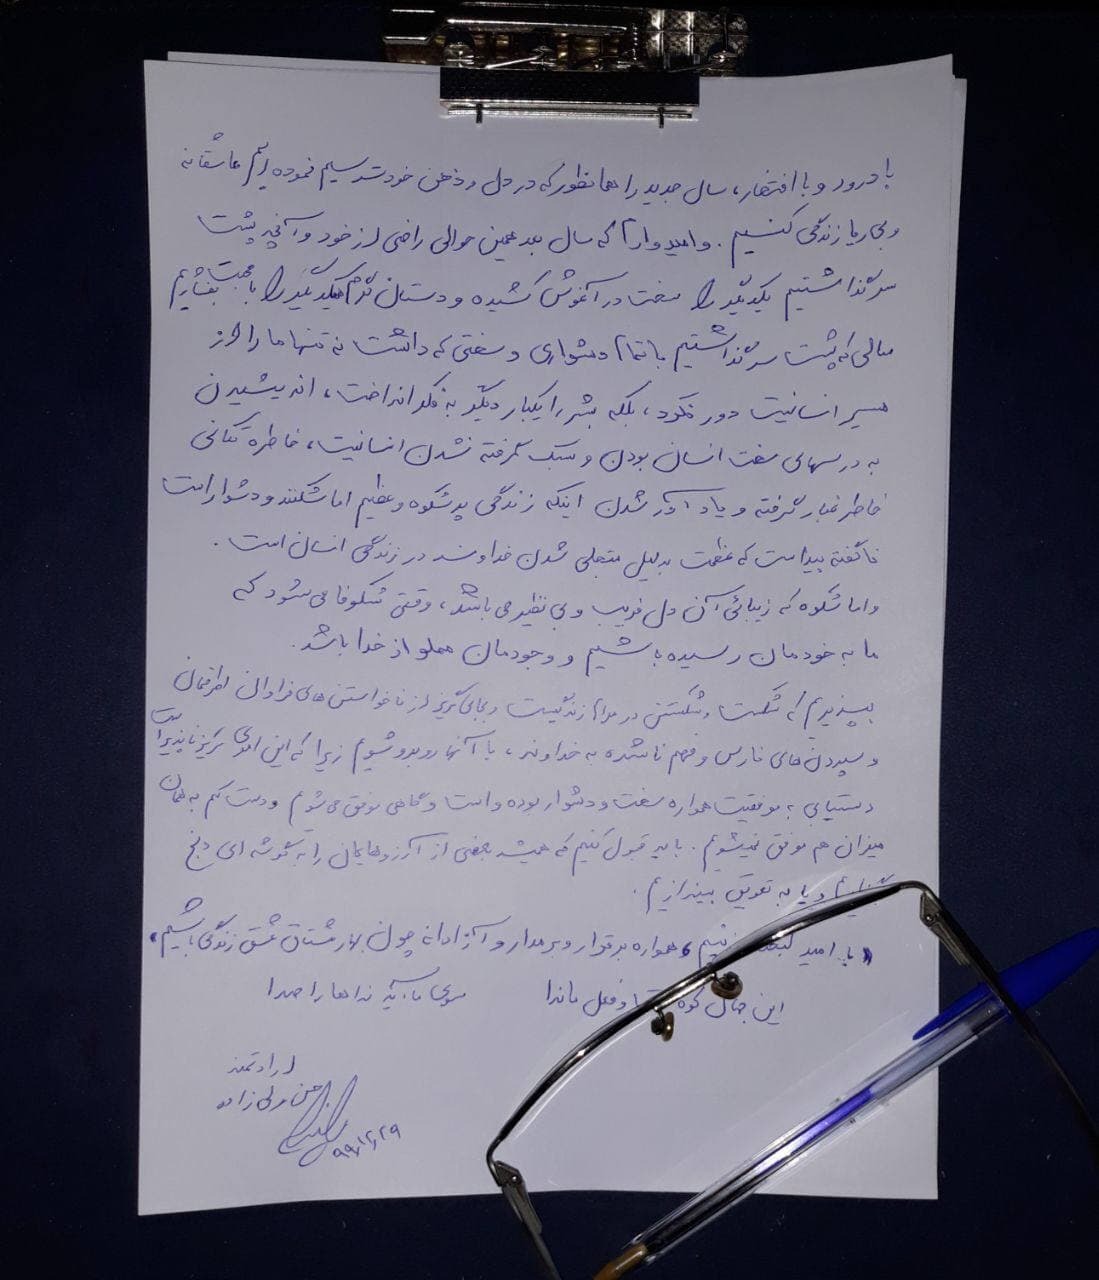 با درود و با افتخار، سال جدید را همانطور که در دل و ذهن خود ترسیم نموده ایم عاشقانه
و بی ریا زندگی کنیم. و امیدوارم که سال بعد همین حوالی راضی از خود و آنچه پشت
سر گذاشتیم یکدیگر را سخت در آغوش کشیده و دستان گرم یکدیگر را با محبت بفشاریم
سالی که پشت سر گذاشتیم با تمام دشواری و سختی که داشت نه تنها ما را از
مسیر انسانیت دور نکرد، بلکه بشر را یکبار دیگر به فکر انداخت، اندیشیدن
به درسهای سخت انسان بودن و سبک گرفته نشدن انسانیت، خاطره تکانی
خاطر غبار گرفته و یاد آور شدن اینکه زندگی پر شکوه و عظیم اما شکننده و دشوار است
ناگفته پیداست که عظمت بدلیل متجلی شدن خداوند در زندگی انسان است.
و اما شکوه که زیبائی آن دل فریب و بی نظیر می باشد، وقتی شکوفا می شود که
ما به خودمان رسیده باشیم و وجودمان مملو از خدا باشد.
بپذیریم که شکست و شکستنی در مدام زندگیست و بجای گریز از ناخواستن های فراوان اطرافمان
و سپردن های نارس و فهم ناشده به خداوند، با آنها روبرو شویم زیرا که این امری گریز ناپذیر است
دستیابی به موفقیت همواره سخت و دشوار بوده و است و گاهی موفق می شویم و دست کم به همان
میزان هم موفق نمیشویم. باید قبول کنیم که همیشه بعضی از آرزوهایمان را به گوشه ای دنج
و یا به تعویق بیندازیم.
با امید همواره برقرار و برمدار و آزادانه چون بهار مشتاق عشق زندگی باشیم
این جهان کوه و فعل ما ندا
سوی ما آید نداها را صدا
ارادتمند
حسن ولی زاده
۹۹/۱۲/۲۹